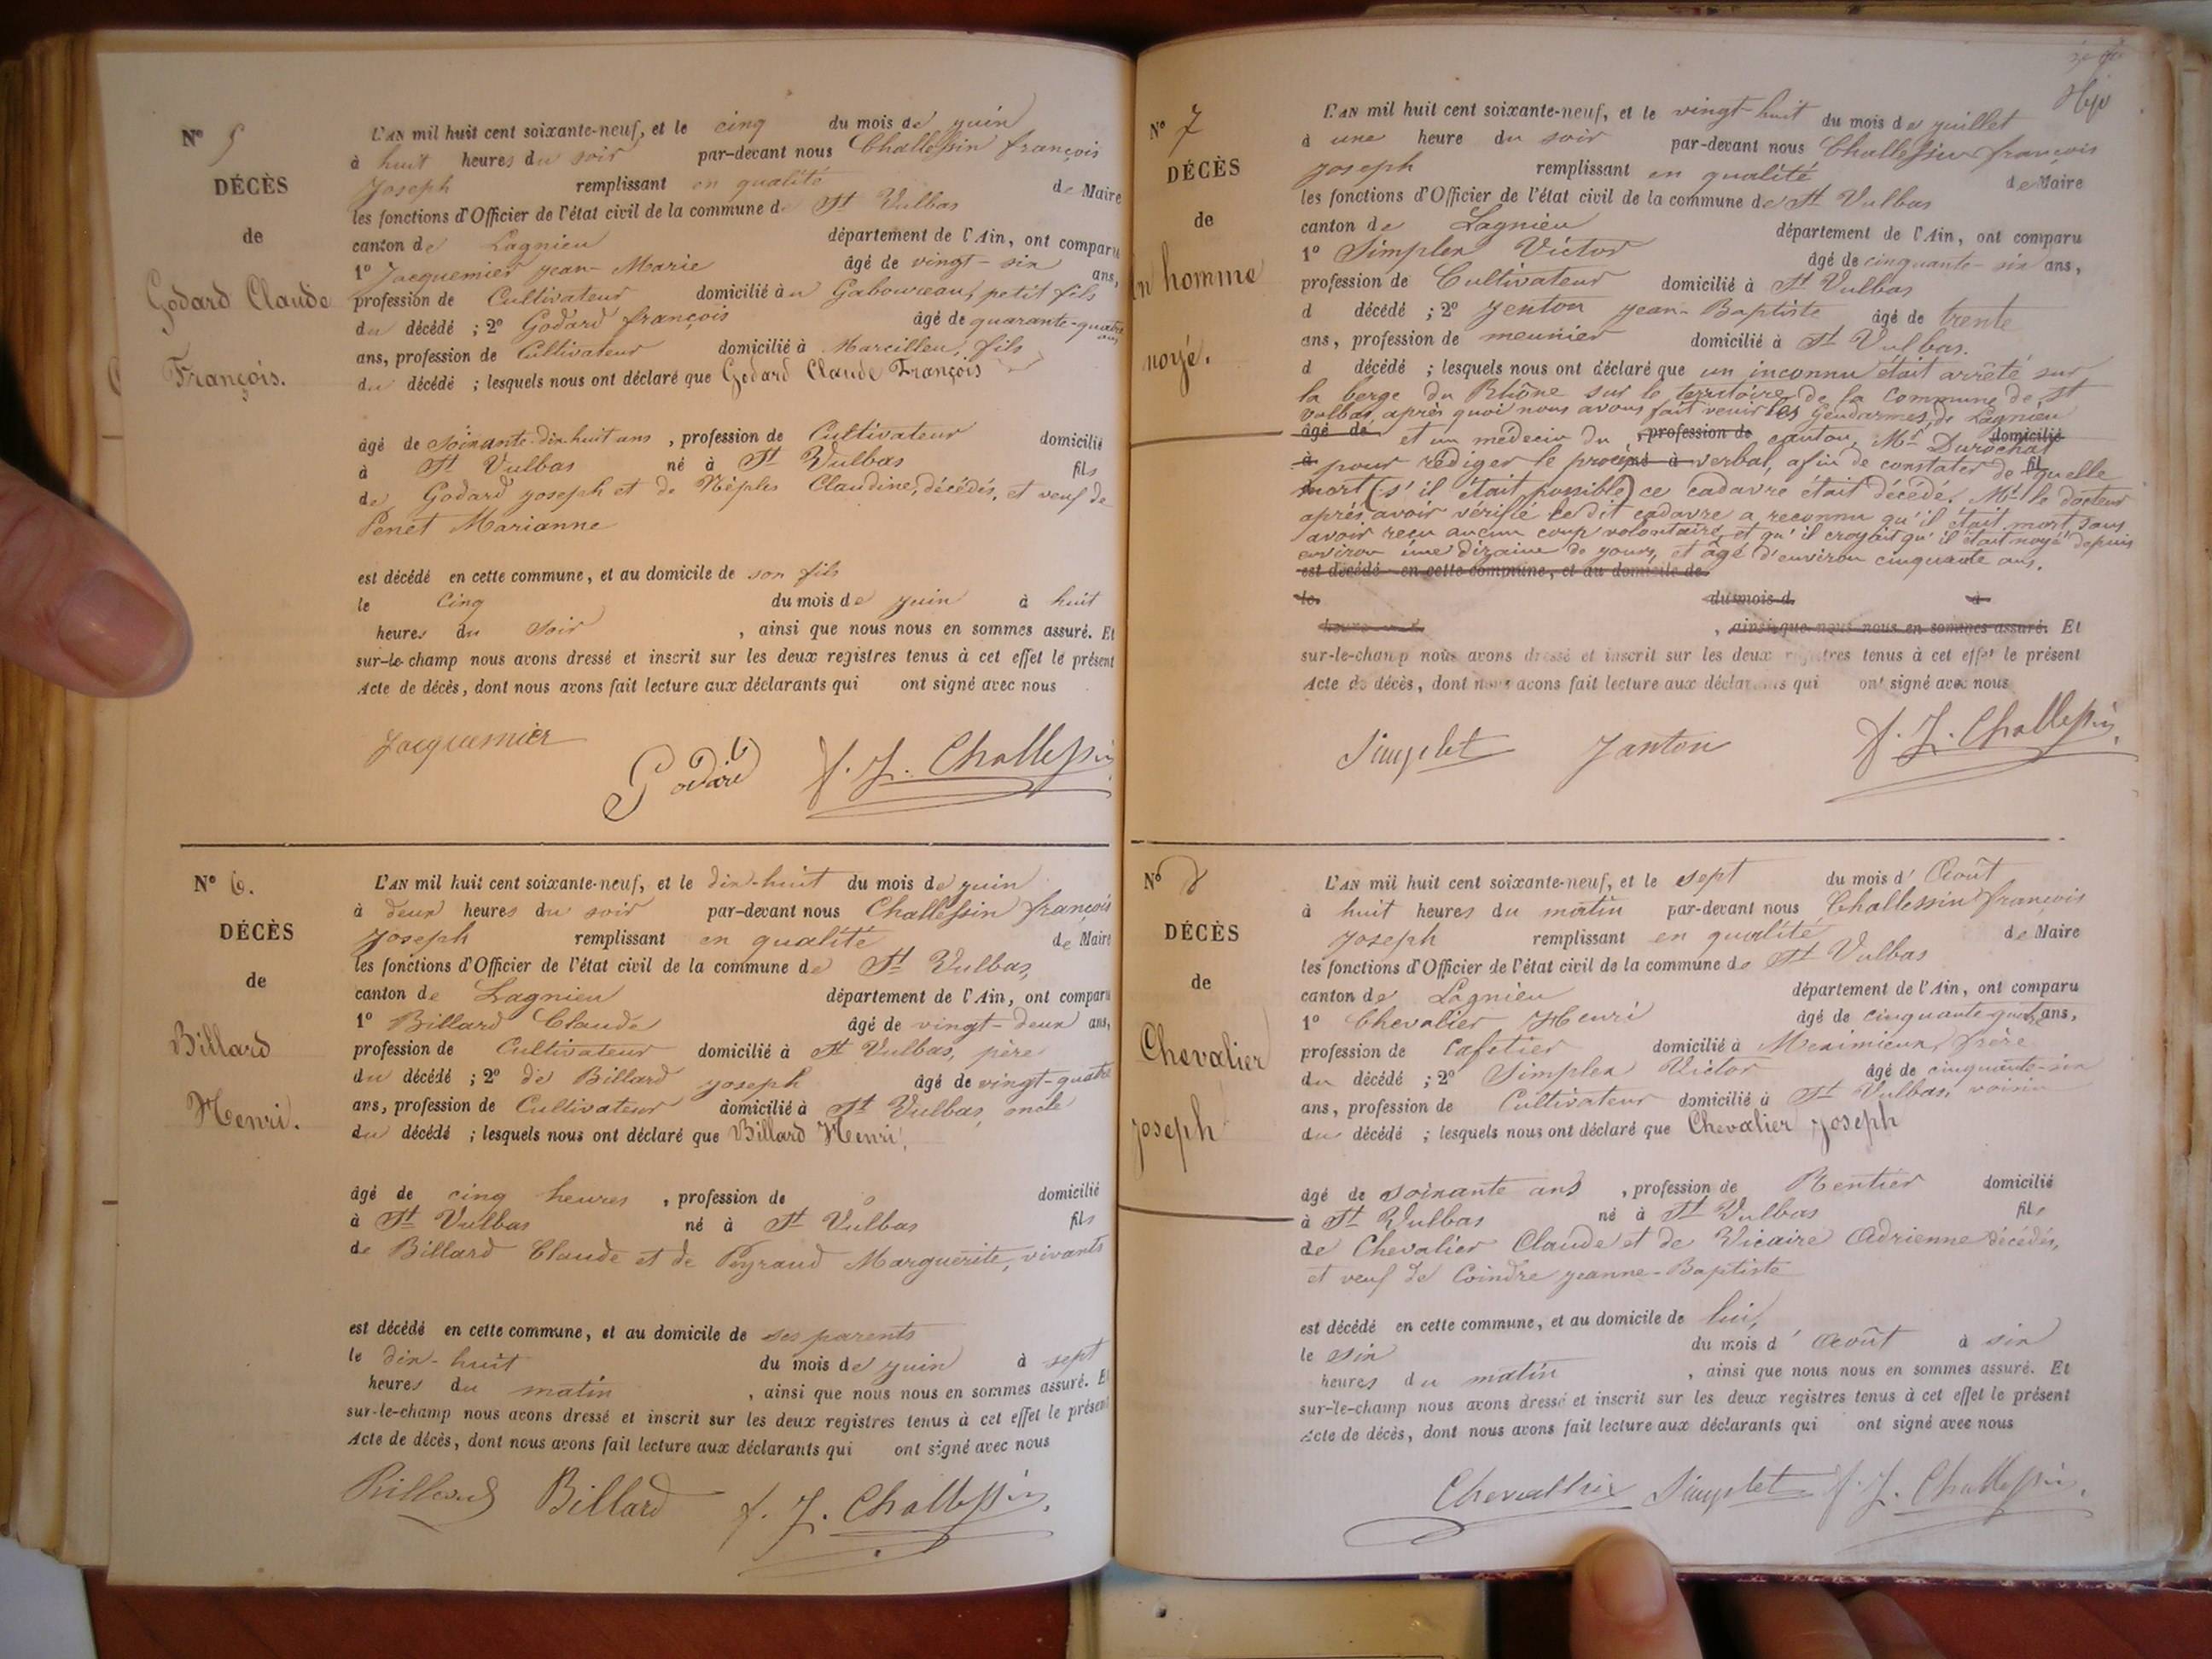 N° 5
DÉCÈS
de
Godard Claude
François.
L'AN mil huit cent soixante-neuf, et le cinq du mois de juin
à huit heures du soir par-devant nous Challessin françois
Joseph remplissant en qualité de Maire
les fonctions d'Officier de l'état civil de la commune de St Vulbas
canton de Lagnieu département de l'Ain, ont comparu
1° Jacquemier jean-Marie âgé de vingt-six ans,
profession de Cultivateur domicilié à petit fils
du décédé ; 2° Godard françois âgé de quarante-quatre
ans, profession de Cultivateur domicilié à Marcilleu, fils
du décédé ; lesquels nous ont déclaré que Godard Claude François
âgé de soixante-dix-huit ans, profession de Cultivateur domicilié
à St Vulbas né à St Vulbas fils
de Godard joseph et de Claudine, décédés, et veuf de
Penet Marianne
est décédé en cette commune, et au domicile de son fils
le cinq du mois de juin à huit
heures du soir, ainsi que nous nous en sommes assuré. Et
sur-le-champ nous avons dressé et inscrit sur les deux registres tenus à cet effet le présent
Acte de décès, dont nous avons fait lecture aux déclarants qui ont signé avec nous
Jacquemier Godard f. J. Challessin
N° 6.
DÉCÈS
de
Billard
Henri.
L'AN mil huit cent soixante-neuf, et le dix-huit du mois de juin
à deux heures du soir par-devant nous Challessin françois
Joseph remplissant en qualité de Maire
les fonctions d'Officier de l'état civil de la commune de St Vulbas,
canton de Lagnieu département de l'Ain, ont comparu
1° Billard Claude âgé de vingt-deux ans,
profession de Cultivateur domicilié à St Vulbas, père
du décédé ; 2° de Billard joseph âgé de vingt-quatre
ans, profession de Cultivateur domicilié à St Vulbas, oncle
du décédé ; lesquels nous ont déclaré que Billard Henri,
âgé de cinq heures, profession de o domicilié
à St Vulbas né à St Vulbas fils
de Billard Claude et de Peyraud Marguerite, vivants
est décédé en cette commune, et au domicile de ses parents
le dix-huit du mois de juin à sept
heures du matin, ainsi que nous nous en sommes assuré. Et
sur-le-champ nous avons dressé et inscrit sur les deux registres tenus à cet effet le présent
Acte de décès, dont nous avons fait lecture aux déclarants qui ont signé avec nous
Billard Billard f. J. Challessin.
N° 7
DÉCÈS
de
Un homme
noyé.
L'AN mil huit cent soixante-neuf, et le vingt-huit du mois de juillet
à une heure du soir par-devant nous Challessin françois
joseph remplissant en qualité de Maire
les fonctions d'Officier de l'état civil de la commune de St Vulbas
canton de Lagnieu département de l'Ain, ont comparu
1° Simplex Victor âgé de cinquante-six ans,
profession de Cultivateur domicilié à St Vulbas
d décédé ; 2° Jenton jean-Baptiste âgé de trente
ans, profession de meunier domicilié à St Vulbas.
d décédé ; lesquels nous ont déclaré que un inconnu était arrêté sur
la berge du Rhône sur le territoire de la commune de St
Vulbas, après quoi nous avons fait venir les Gendarmes, de Lagnieu
âgé de et un médecin du, profession de canton, Mr Durochat domicilié
à pour rédiger le procès né à verbal, afin de constater de fil quelle
mort (s'il était possible) ce cadavre était décédé. Mr le docteur
après avoir vérifié ledit cadavre a reconnu qu'il était mort sans
avoir reçu aucun coup volontaire, et qu'il croyait qu'il était noyé depuis
environ une dizaine de jours, et âgé d'environ cinquante ans.
est décédé en cette commune, et au domicile de
le du mois d à
heure, ainsi que nous nous en sommes assuré. Et
sur-le-champ nous avons dressé et inscrit sur les deux registres tenus à cet effet le présent
Acte de décès, dont nous avons fait lecture aux déclarants qui ont signé avec nous
Simplet Janton f. J. Challessin,
N° 8
DÉCÈS
de
Chevalier
joseph
L'AN mil huit cent soixante-neuf, et le sept du mois d'Août
à huit heures du matin par-devant nous Challessin françois
joseph remplissant en qualité de Maire
les fonctions d'Officier de l'état civil de la commune de St Vulbas
canton de Lagnieu département de l'Ain, ont comparu
1° Chevalier Henri âgé de cinquante-quatre ans,
profession de Cafetier domicilié à Meximieux, frère
du décédé ; 2° Simplex Victor âgé de cinquante-six
ans, profession de Cultivateur domicilié à St Vulbas, voisin
du décédé ; lesquels nous ont déclaré que Chevalier joseph
âgé de soixante ans, profession de Rentier domicilié
à St Vulbas né à St Vulbas fils
de Chevalier Claude et de Vicaire Adrienne décédés,
et veuf de Coindre jeanne-Baptiste
est décédé en cette commune, et au domicile de lui,
le six du mois d'Août à six
heures du matin, ainsi que nous nous en sommes assuré. Et
sur-le-champ nous avons dressé et inscrit sur les deux registres tenus à cet effet le présent
Acte de décès, dont nous avons fait lecture aux déclarants qui ont signé avec nous
Chevallier Simplet f. J. Challessin.